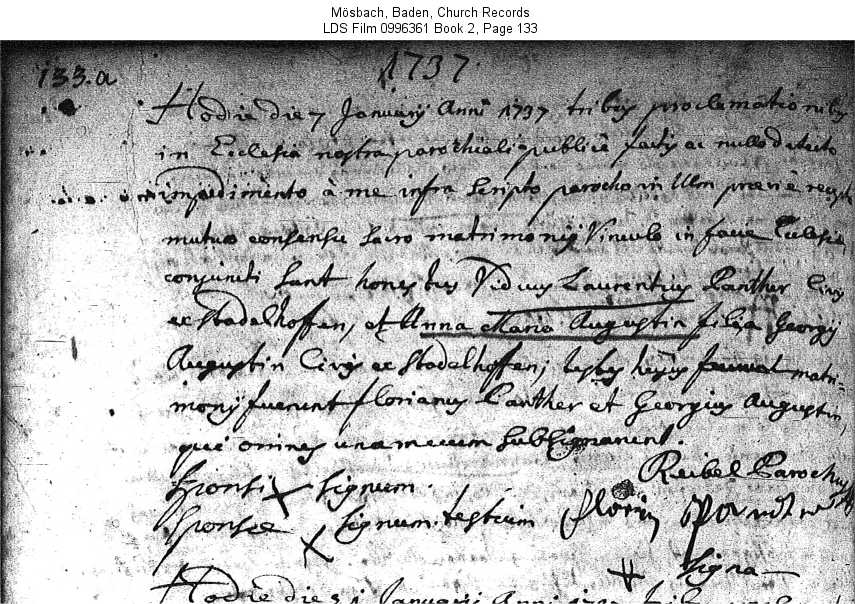 Mösbach, Baden, Church Records
LDS Film 0996361 Book 2, Page 133
133.a
1737.
Hodie die 7 Januarij Anni 1737 tribus proclamationibus
in Ecclesia nostra parochiali publicè factis ac nullo detecto
impedimento à me infra scripto parocho in Ulm
mutuo consensu sacro matrimonij Vinculo in facie Ecclesiae
conjuncti sunt honestus Viduus Laurentius Panther Civis
ex Stadelhoffen, et Anna Maria Augustin filia Georgij
Augustin Civis ex Stadelhoffen, testes hujus matri-
monij fuerunt Florianus Panther et Georgius Augustin,
qui omnes una mecum subsignarunt.
Reibel Parochus
Sponsi X signum.
Sponsae X signum. testium Florin
signa
Hodie die 21 Januarij Anni